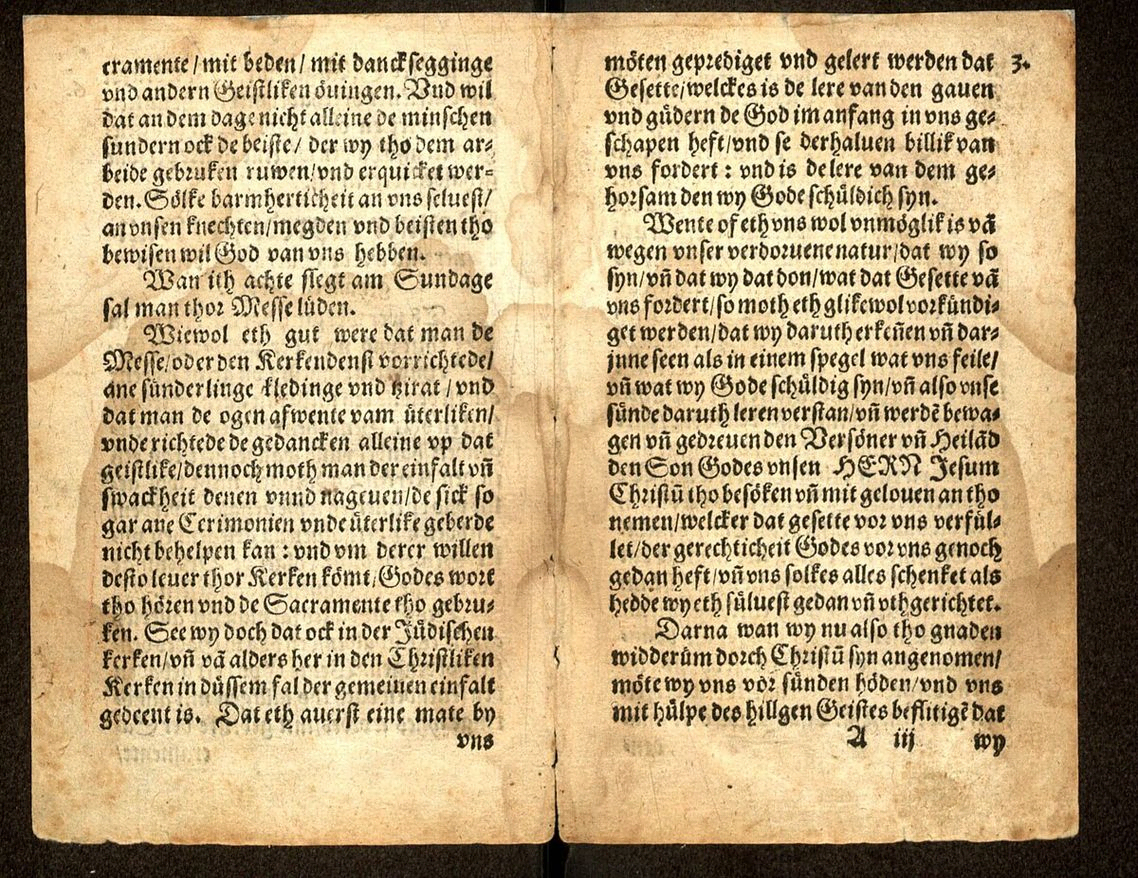 cramente / mit beden / mit danckſegginge
vnd andern Geiſtliken oͤuingen. Vnd wil
dat an dem dage nicht alleine de minſchen
ſundern ock de beiſte / der wy tho dem ar⸗
beide gebruken ruwen / vnd erquicket wer⸗
den. Soͤlke barmherticheit an vns ſelueſt /
an vnſen knechten / megden vnd beiſten tho
bewiſen wil God van vns hebben.
Wan ith achte ſlegt am Sundage
ſal man thor Meſſe luͤden.
Wiewol eth gut were dat man de
Meſſe / oder den Kerkendenſt vorrichtede /
ane ſuͤnderlinge kledinge vnd tzirat / vnd
dat man de ogen afwente vam uͤterliken /
vnde richtede de gedancken alleine vp dat
geiſtlike / dennoch moth man der einfalt vn̄
ſwackheit denen vnnd nageuen / de ſick ſo
gar ane Cerimonien vnde uͤterlike geberde
nicht behelpen kan : vnd vm derer willen
deſto leuer thor Kerken koͤmt / Godes wort
tho hoͤren vnd de Sacramente tho gebru⸗
ken. See wy doch dat ock in der Juͤdiſchen
kerken / vn̄ vā alders her in den Chriſtliken
Kerken in duͤſſem fal der gemeinen einfalt
gedeent is. Dat eth auerſt eine mate by
vns
moͤten geprediget vnd gelert werden dat 3.
Geſette / welckes is de lere van den gauen
vnd guͤdern de God im anfang in vns ge⸗
ſchapen heft / vnd ſe derhaluen billik van
vns fordert : vnd is de lere van dem ge⸗
horſam den wy Gode ſchuͤldich ſyn.
Wente of eth vns wol vnmoͤglik is vā
wegen vnſer verdoruene natur / dat wy ſo
ſyn / vn̄ dat wy dat don / wat dat Geſette vā
vns fordert / ſo moth eth glikewol vorkuͤndi⸗
get werden / dat wy daruth erkeñen vn̄ dar⸗
jnne ſeen als in einem ſpegel wat vns feile /
vn̄ wat wy Gode ſchuͤldig ſyn / vn̄ alſo vnſe
ſuͤnde daruth leren verſtan / vn̄ werdē bewa⸗
gen vn̄ gedreuen den Verſoͤner vn̄ Heilād
den Son Godes vnſen HERN Jeſum
Chriſtū tho beſoͤken vn̄ mit gelouen an tho
nemen / welcker dat geſette vor vns verfuͤl⸗
let / der gerechticheit Godes vor vns genoch
gedan heft / vn̄ vns ſolkes alles ſchenket als
hedde wy eth ſuͤlueſt gedan vn̄ vthgerichtet.
Darna wan wy nu alſo tho gnaden
widderuͤm dorch Chriſtū ſyn angenomen /
moͤte wy vns voͤr ſuͤnden hoͤden / vnd vns
mit huͤlpe des hillgen Geiſtes beflitigē dat
A iij wy